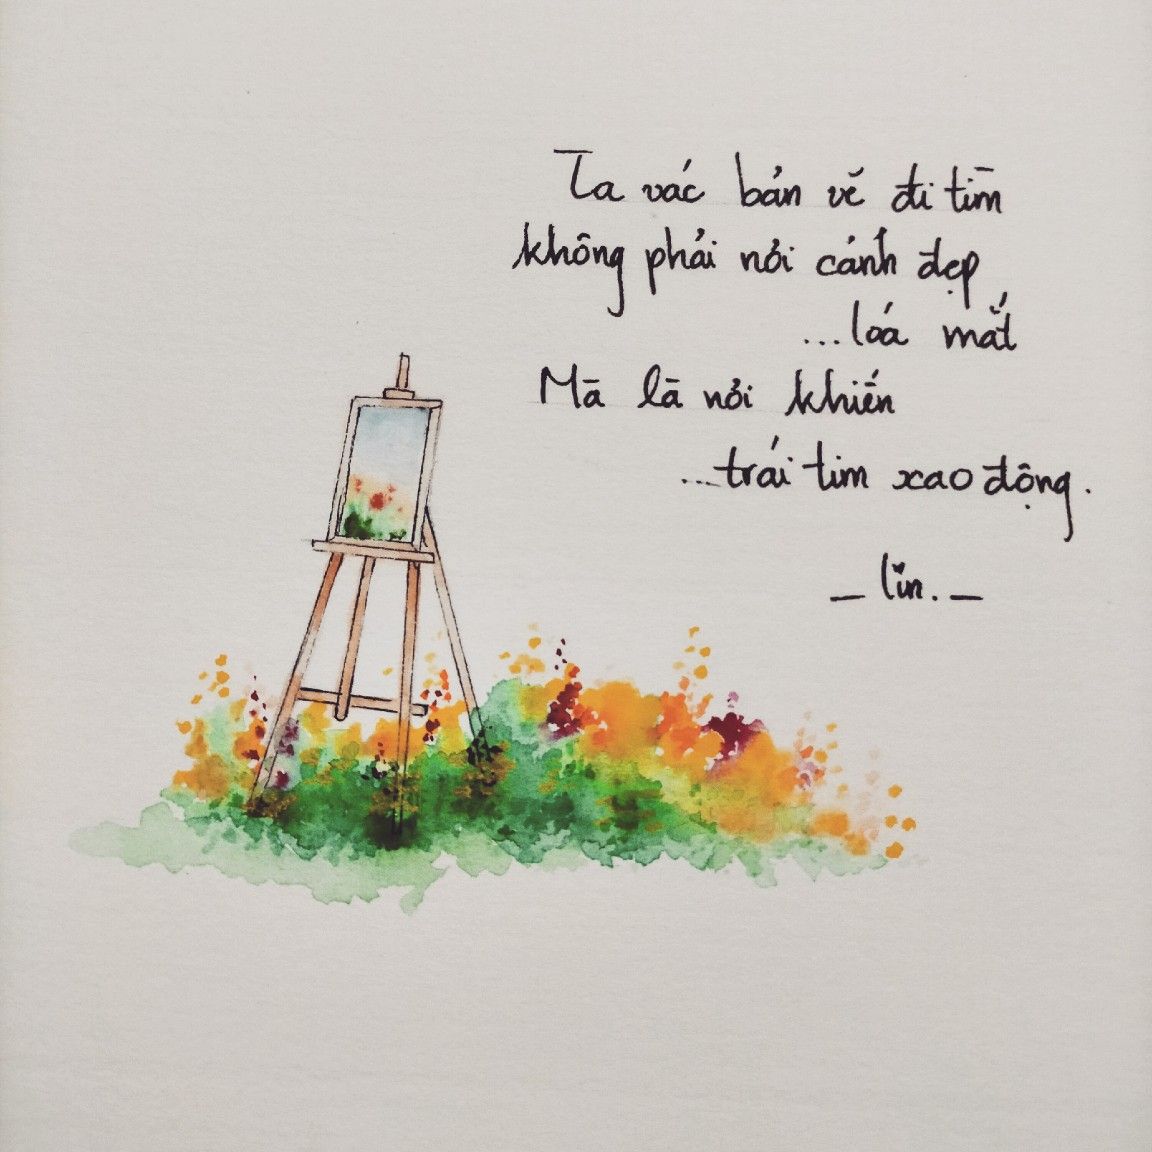 Ta vác bản vẽ đi tìm
không phải nơi cảnh đẹp
...loá mắt
Mà là nơi khiến
...trái tim xao động.
_ lin. _